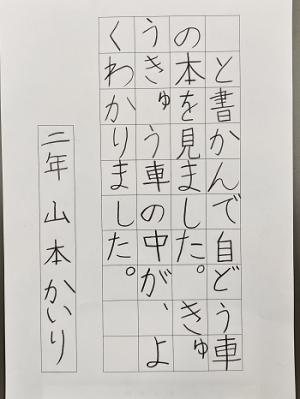 と書かんで自どう車
の本を見ました。きゅ
うきゅう車の中が、よ
くわかりました。
二年 山本かいり